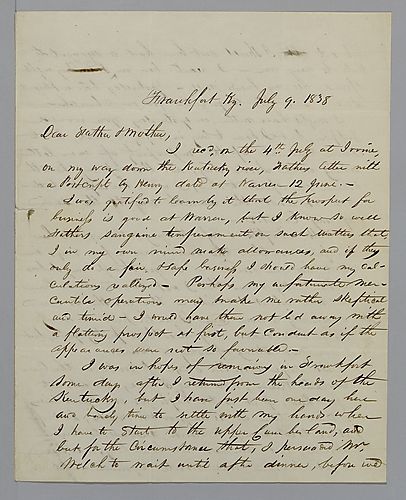 Frankfort Ky. July 9. 1838
Dear Father & Mother,
I recd, on the 4th July at Irvine,
on my way down the Kentucky river, Fathers letter with
a Postscript by Henry dated at Warren 12 June. –
I was gratified to learn by it that the prospect for
business is good at Warren, but I know so well
Fathers sanguine temperament on such matters that
I in my own mind make allowances, and if they
only do a fair, & safe business I should have my cal-
culations realized – Perhaps my unfortunate mer-
cantile operations may make me rather skeptical
and timid – I would have them not led away with
a flattering prospect at first, but conduct as if the
appearances were not so favourable. –
I was in hopes of remaining in Frankfort
some days after I returned from the heads of the
Kentucky, but I have just been one day here
and barely time to settle with my hands when
I have to start to the upper Cumberland, and
but for the Circumstance that, I persuaded Mr.
Welch to wait until after dinner, before we